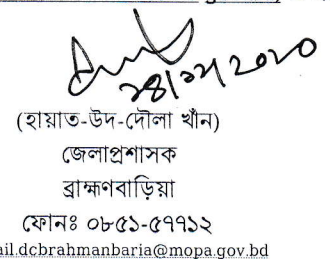 ২৪/১২/২০২০
(হায়াত-উদ-দৌলা খাঁন)
জেলাপ্রশাসক
ব্রাহ্মণবাড়িয়া
ফোনঃ ০৮৫১-৫৭৭১২
ail.dcbrahmanbaria@mopa.gov.bd